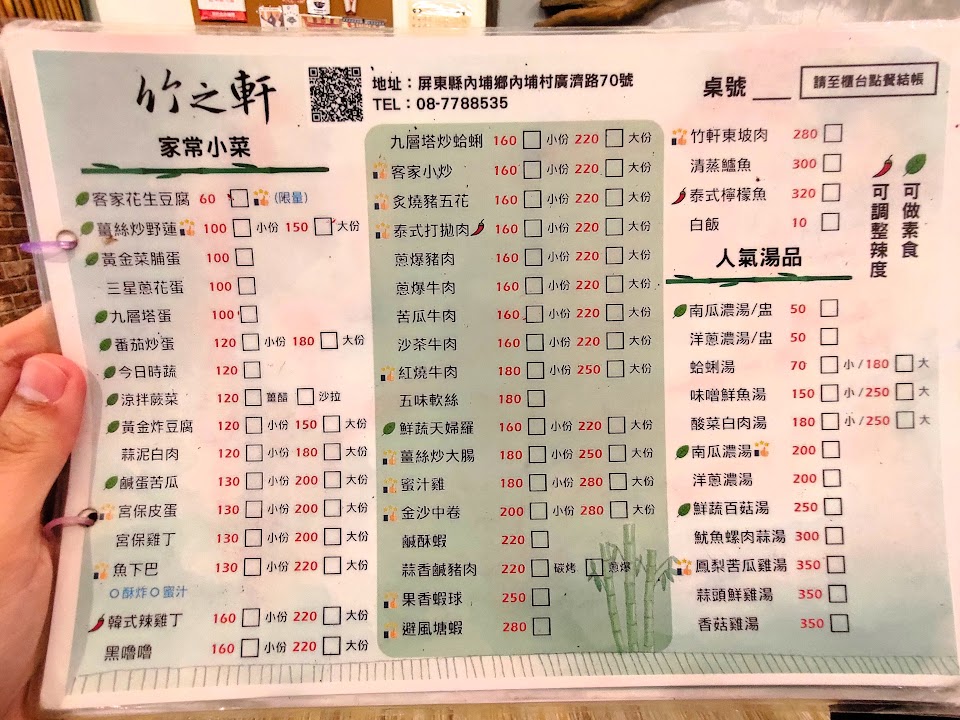 竹之軒
地址：屏東縣內埔鄉內埔村廣濟路70號
TEL：08-7788535
桌號
請至櫃台點餐結帳
家常小菜
客家花生豆腐 60 (限量)
薑絲炒野蓮 100 小份 150 大份
黃金菜脯蛋 100
三星蔥花蛋 100
九層塔蛋 100
番茄炒蛋 120 小份 180 大份
今日時蔬 120
涼拌蕨菜 120 薑醋 沙拉
黃金炸豆腐 120 小份 150 大份
蒜泥白肉 120 小份 180 大份
鹹蛋苦瓜 130 小份 200 大份
宮保皮蛋 130 小份 200 大份
宮保雞丁 130 小份 200 大份
魚下巴 130 小份 220 大份
酥炸 蜜汁
韓式辣雞丁 160 小份 220 大份
黑嚕嚕 160 小份 220 大份
九層塔炒蛤蜊 160 小份 220 大份
客家小炒 160 小份 220 大份
炙燒豬五花 160 小份 220 大份
泰式打拋肉 160 小份 220 大份
蔥爆豬肉 160 小份 220 大份
蔥爆牛肉 160 小份 220 大份
苦瓜牛肉 160 小份 220 大份
沙茶牛肉 160 小份 220 大份
紅燒牛肉 180 小份 250 大份
五味軟絲 180
鮮蔬天婦羅 160 小份 220 大份
薑絲炒大腸 180 小份 250 大份
蜜汁雞 180 小份 280 大份
金沙中卷 200 小份 280 大份
鹹酥蝦 220
蒜香鹹豬肉 220 碳烤 蔥爆
果香蝦球 250
避風塘蝦 280
竹軒東坡肉 280
清蒸鱸魚 300
泰式檸檬魚 320
白飯 10
可做素食
可調整辣度
人氣湯品
南瓜濃湯/盅 50
洋蔥濃湯/盅 50
蛤蜊湯 70 小/180 大
味噌鮮魚湯 150 小/250 大
酸菜白肉湯 180 小/250 大
南瓜濃湯 200
洋蔥濃湯 200
鮮蔬百菇湯 250
魷魚螺肉蒜湯 300
鳳梨苦瓜雞湯 350
蒜頭鮮雞湯 350
香菇雞湯 350